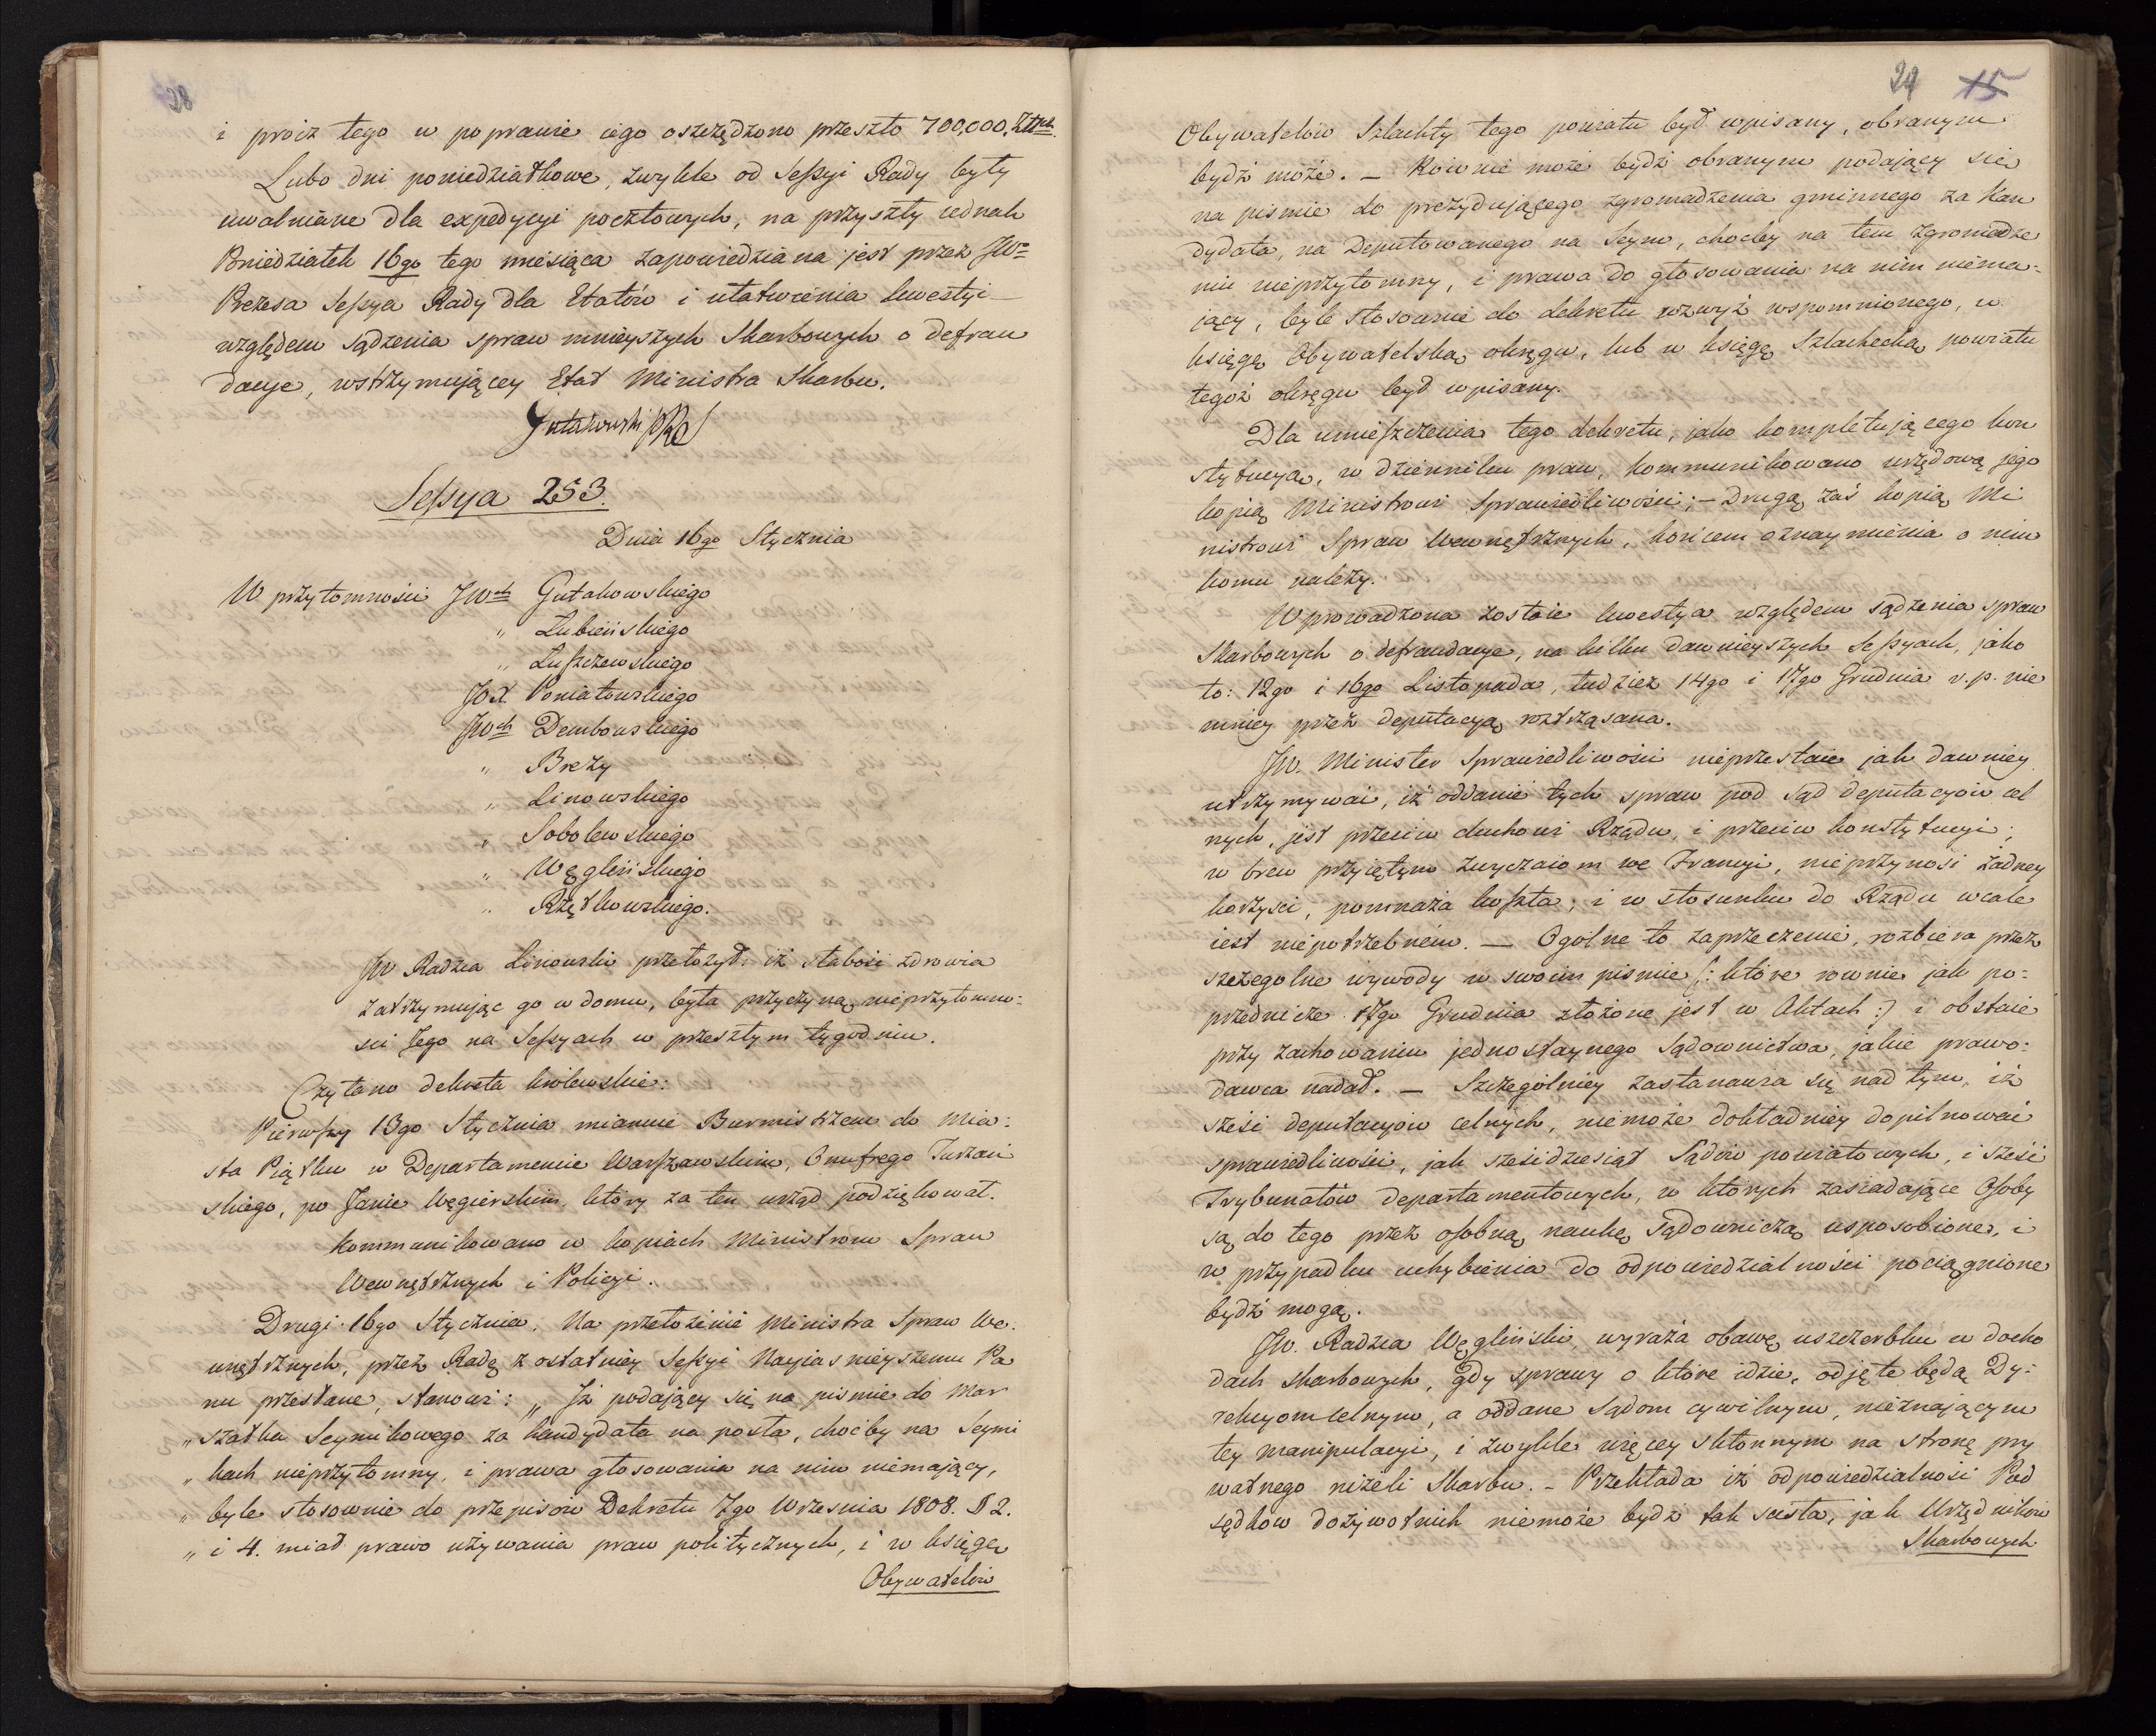 28
i prócz tego w poprawie iego oszczędzono przeszło 700,000. Złtych.
Lubo dni poniedziałkowe, zwykle od Sessyi Rady były
uwalniane dla expedycyi pocztowych, na przyszły iednak
Poniedziałek 16go tego miesiąca zapowiedziana jest przez JWo
Prezesa Sessya Rady dla Etatów i ułatwienia kwestyi
względem sądzenia spraw mnieyszych Skarbowych o defrau
dacye, wstrzymującey Etat Ministra Skarbu.
Gutakowski PRS
Sessya 253.
Dnia 16go Stycznia
W przytomności JWch Gutakowskiego
" Łubieńskiego
" Łuszczewskiego
JOX. Poniatowskiego
JWch Dembowskiego
" Brezy
" Linowskiego
" Sobolewskiego
" Węgleńskiego
" Rzętkowskiego.
JW Radzca Linowski przełożył: iż słabość zdrowia
zatrzymując go w domu, była przyczyną nieprzytomno=
ści Jego na Sessyach w przeszłym tygodniu.
Czytano dekreta królewskie:
Pierwszy 13go Stycznia mianuie Burmistrzem do Mia=
sta Piątku w Departamencie Warszawskim, Onufrego Turzań
skiego, po Janie Węgierskim, który za ten urząd podziękował.
Kommunikowano w kopiach Ministrom Spraw
Wewnętrznych i Policyi.
Drugi 16go Stycznia. Na przełożenie Ministra Spraw We=
wnętrznych, przez Radę z ostatniey Sessyi Nayiaśnieyszemu Pa
nu przesłane, stanowi: „ Iż podaiący się na pismie do Mar
„ szałka Seymikowego za kandydata na posła, choćby na Seymi
„ kach nieprzytomny, i prawa głosowania na nim niemaiący,
„ byle stosownie do przepisów Dekretu 7go Września 1808. § 2.
„ i 4. miał prawo używania praw politycznych, i w księgę
Obywatelów
29 15
Obywatelów Szlachty tego powiatu był wpisany, obranym
bydź może. — Równie może bydź obranym podający się
na pismie do prezydującego zgromadzenia gminnego za Kan
dydata, na Deputowanego na Seym, choćby na tem zgromadze
niu nieprzytomny, i prawa do głosowania na nim niema=
jący, byle stosownie do dekretu wzwyż wspomnionego, w
księgę Obywatelską okręgu, lub w księgę Szlachecką powiatu
tegoż okręgu był wpisany.
Dla umieszczenia tego dekretu, jako kompletującego kon
stytucya, w dzienniku praw, kommunikowano urzędową jego
kopią Ministrowi Sprawiedliwości; — Drugą zaś kopią Mi
nistrowi Spraw Wewnętrznych, końcem oznaymienia o nim
komu należy.
Wprowadzona zostaie kwestya względem sądzenia spraw
Skarbowych o defraudacye, na kilku dawnieyszych Sessyach, jako
to: 12go i 16go Listopada, tudzież 14go i 17go Grudnia r. p. nie
mniey przez deputacyą roztrząsana.
JW. Minister Sprawiedliwości nieprzestaie jak dawniey
utrzymywać, iż oddanie tych spraw pod sąd deputacyów cel
nych, jest przeciw duchowi Rządu, i przeciw konstytucyi;
w brew przyiętym zwyczaiom we Francyi, nieprzynosi żadney
korzyści, pomnaża koszta; i w stosunku do Rządu wcale
iest niepotrzebném. — Ogólne to zaprzeczenie, rozbiera przez
szczególne wywody w swoim pismie (: które równie jak po=
przednicze 17go Grudnia złożone jest w Aktach :) i obstaie
przy zachowaniu jednostaynego Sądownictwa, jakie prawo=
dawca nadał. — Szczególniey zastanawia się nad tym, iż
sześć deputacyów celnych, niemoże dokładniey dopilnować
sprawiedliwości, jak sześćdziesiąt Sądów powiatowych, i sześć
Trybunałów departamentowych, w których zasiadające Osoby
są do tego przez osobną naukę sądowniczą usposobione, i
w przypadku uchybienia do odpowiedzialności pociągnione
bydź mogą.
JW. Radzca Węgliński, wyraża obawę uszczerbku w docho
dach skarbowych, gdy sprawy o które idzie, odjęte będą Dy=
rekcyom celnym, a oddane Sądom cywilnym, nieznającym
tey manipulacyi, i zwykle więcey skłonnym na stronę pry
watnego niżeli Skarbu. — Przekłada iż odpowiedzialność Pod
sędków dożywotnich niemoże bydź tak ścisła, jak Urzędników
Skarbowych